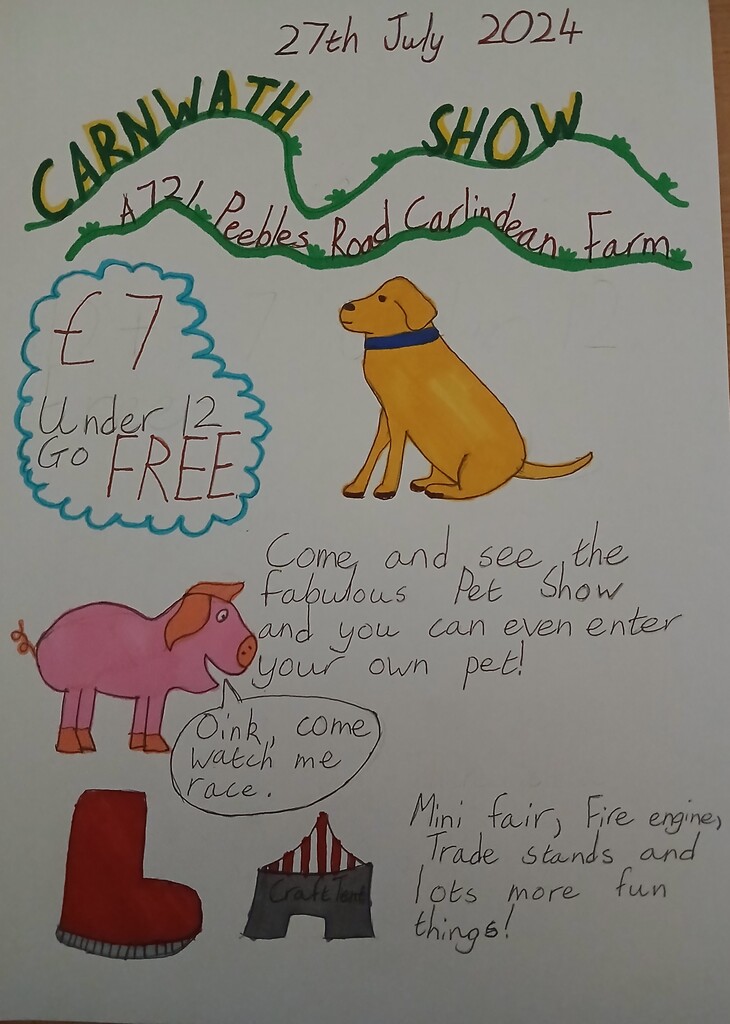 27th July 2024
CARNWATH SHOW
A721 Peebles Road Carlindean Farm
£7
Under 12
Go FREE
Come and see the
fabulous Pet Show
and you can even enter
your own pet!
Oink, come
watch me
race.
Craft Tent
Mini fair, Fire engine,
Trade stands and
lots more fun
things!